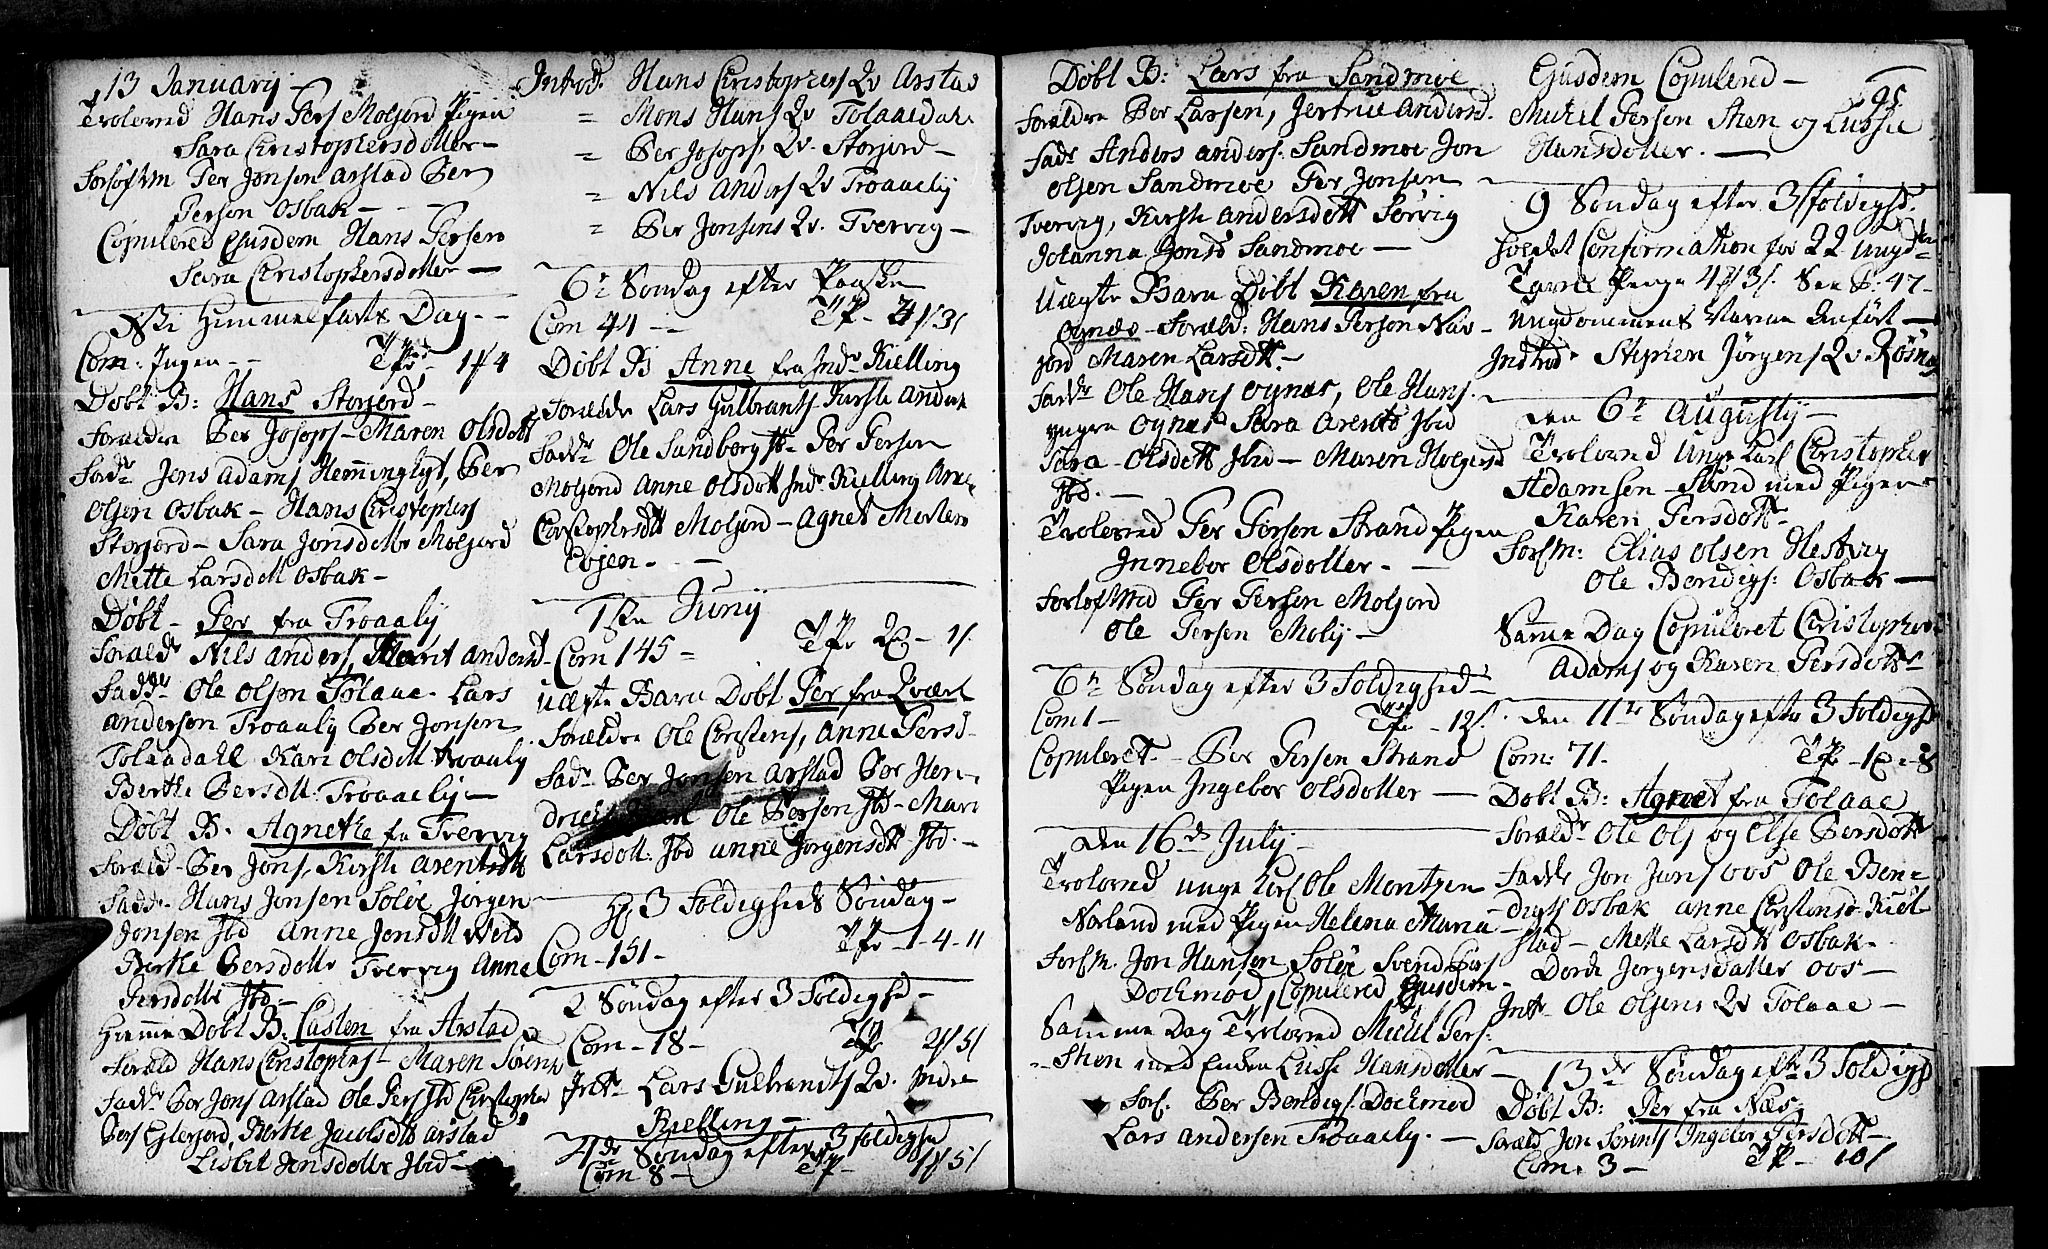 13 January
Troloved Hans Pers Moljord Pigen
Sara Christophersdotter
Forlofvm Per Jonsen Arstad Per
Person Osbak
Copulered Ejusdem Hans Persen
Sara Christophersdotter
Xsti Himmelfarts Dag
Com: Ingen
Døbt B: Hans Storjord
Forældre Per Josops Maren Olsdott
Fadr Jens Adams Hemminglyt, Per
Olsen Osbak Hans Christophers
Storjord Sara Jonsdottr Moljord
Mette Larsdott Osbak
Døbt Per fra Troaaly
Foræld Nils Anders, Anders
Fadr Ole Olsen Tolaae Lars
Andersen Troaaly Per Jonsen
Tolaadahl Kari Olsdott Troaaly
Berthe Persdtt. Troaaely
Døbt B. Agnethe fa Tvervig
Foræld Per Jons, Kirsti Arentsdtt
Fadr Hans Jonsen Soløe Jørgen
Jonsen Ibd Anne Jonsdtt
Berthe Persdottr Tvervig Anne
Persdottr Ibd
Hiemme Døbt B: Casten fra Arstad
Foræld Hans Christophers Maren Sørens
Fadr Per Jons Arstad Ole Pers Ibd Christopher
Pers Eglerjord, Berthe Jacobsdtt Arstad
Lisbet Jonsdottr Ibid
Introd. Hans Christophers Qv Arstad
= Mons Hans Qv Tolaadahl
= Per Josops, Qv. Storjord
= Nils Anders Qv Troaaely
= Per Jonsens Qv. Tvervig
6te Søndag efter Paaske
Com 44
Døbt B Anne fra Indr Kielling
Forældre Lars Gulbrants Kirsti Anders
Fadr Ole Sandberg Per Persen
Moljord Anne Olsdott Indr Kielling
Christophersdtt Moljord Agnet Morten
Evjen
1ste Juny
Com 145
Uægte Barn Døbt Per fra Qvæl
Forældre Ole Christens, Anne Persd
Fadr Per Jonsen Arstad Per Hen
Ole Persen Ibd Mari
Larsdott: Ibd Anne Jørgensdtt Ibd.
H 3 Foldigheds Søndag
Com 151 1-4-11
2 Søndag efter 3 Foldighed
Com 18
Intr Lars Gulbrandts Qv. Indre
Kielling
4de Søndag efter 3 Foldighed
Com 8
Døbt B: Lars fra Sandmoe
Forældre Per Larsen, Jertrue Andersd.
Fadr Anders Anders: Sandmoe Jon
Olsen Sandmoe Per Jonsen
Tvervig, Kirsti Andersdott Sørvig
Johanna Jonsd Sandmoe
Uægte Barn Døbt Karen fra
Øynæs Foræld: Hans Person Næs
jord Maren Larsdtt
Fadr Ole Hans Øynæs, Ole Hans
yngre Øynæs Sara Arents Ibid
Sara Olsdott Ibid Maren Holgersd
Ibd.
Trolovred Per Persen Strand Pigen
Innebor Olsdotter
Forlofvmd Per Persen Moljord
Ole Persen Moly
6te Søndag efter 3 Foldighed
Com 1
Copuleret Per Persen Strand
Pigen Ingebor Olsdotter
Den 16de July
Trolovred unge Karl Ole Montzen
Norland med Pigen Helena Maria
Forlm. Jon Hansen Soløe Svend Pers
Dochmod, Copulered Ejusdem
Samme Dag Trolovred Mickel Pers:
Sten med Enken Lisse Hansdotter
Forl. Per Bendigs. Dochmod
Lars Andersen Troaaely.
Ejusdem Copulered
95
Mickel Persen Sten og Lisse
Hansdotter.
9 Søndag efter 3 foldighd.
holdet Confirmation for 22 ungd
Penge See P. 47
Ungdommens Navne Anført
Indtrod Stephen Jørgens Qv Røsnes
Den 6te Augusty
Trolovred Unge Karl Christopher
Adamsen Sund med Pigen
Karen Persdott
Forlm: Elias Olsen Hesberg
Ole Bendigs: Osbak
Samme Dag Copuleret Christopher
Adams og Karen Persdott
Den 11te Søndag efter 3 Foldighd
Com: 71.
Døbt B: Agnet fra Tolaae
Forældr Ole Ols og Else Persdott
Fadr Jon Jans Oos Ole Ben=
digts Osbak Anne Christensd Kiel
stad Mette Larsdtt Osbak
Dorth Jørgensdatter Oos
Intr Ole Olsens Qv Tolaae
13de Søndag eftr 3 Foldighd
Døbt B: Per fra Næs
Foræld Jon Sørents Ingebor Persdott
Com: 3